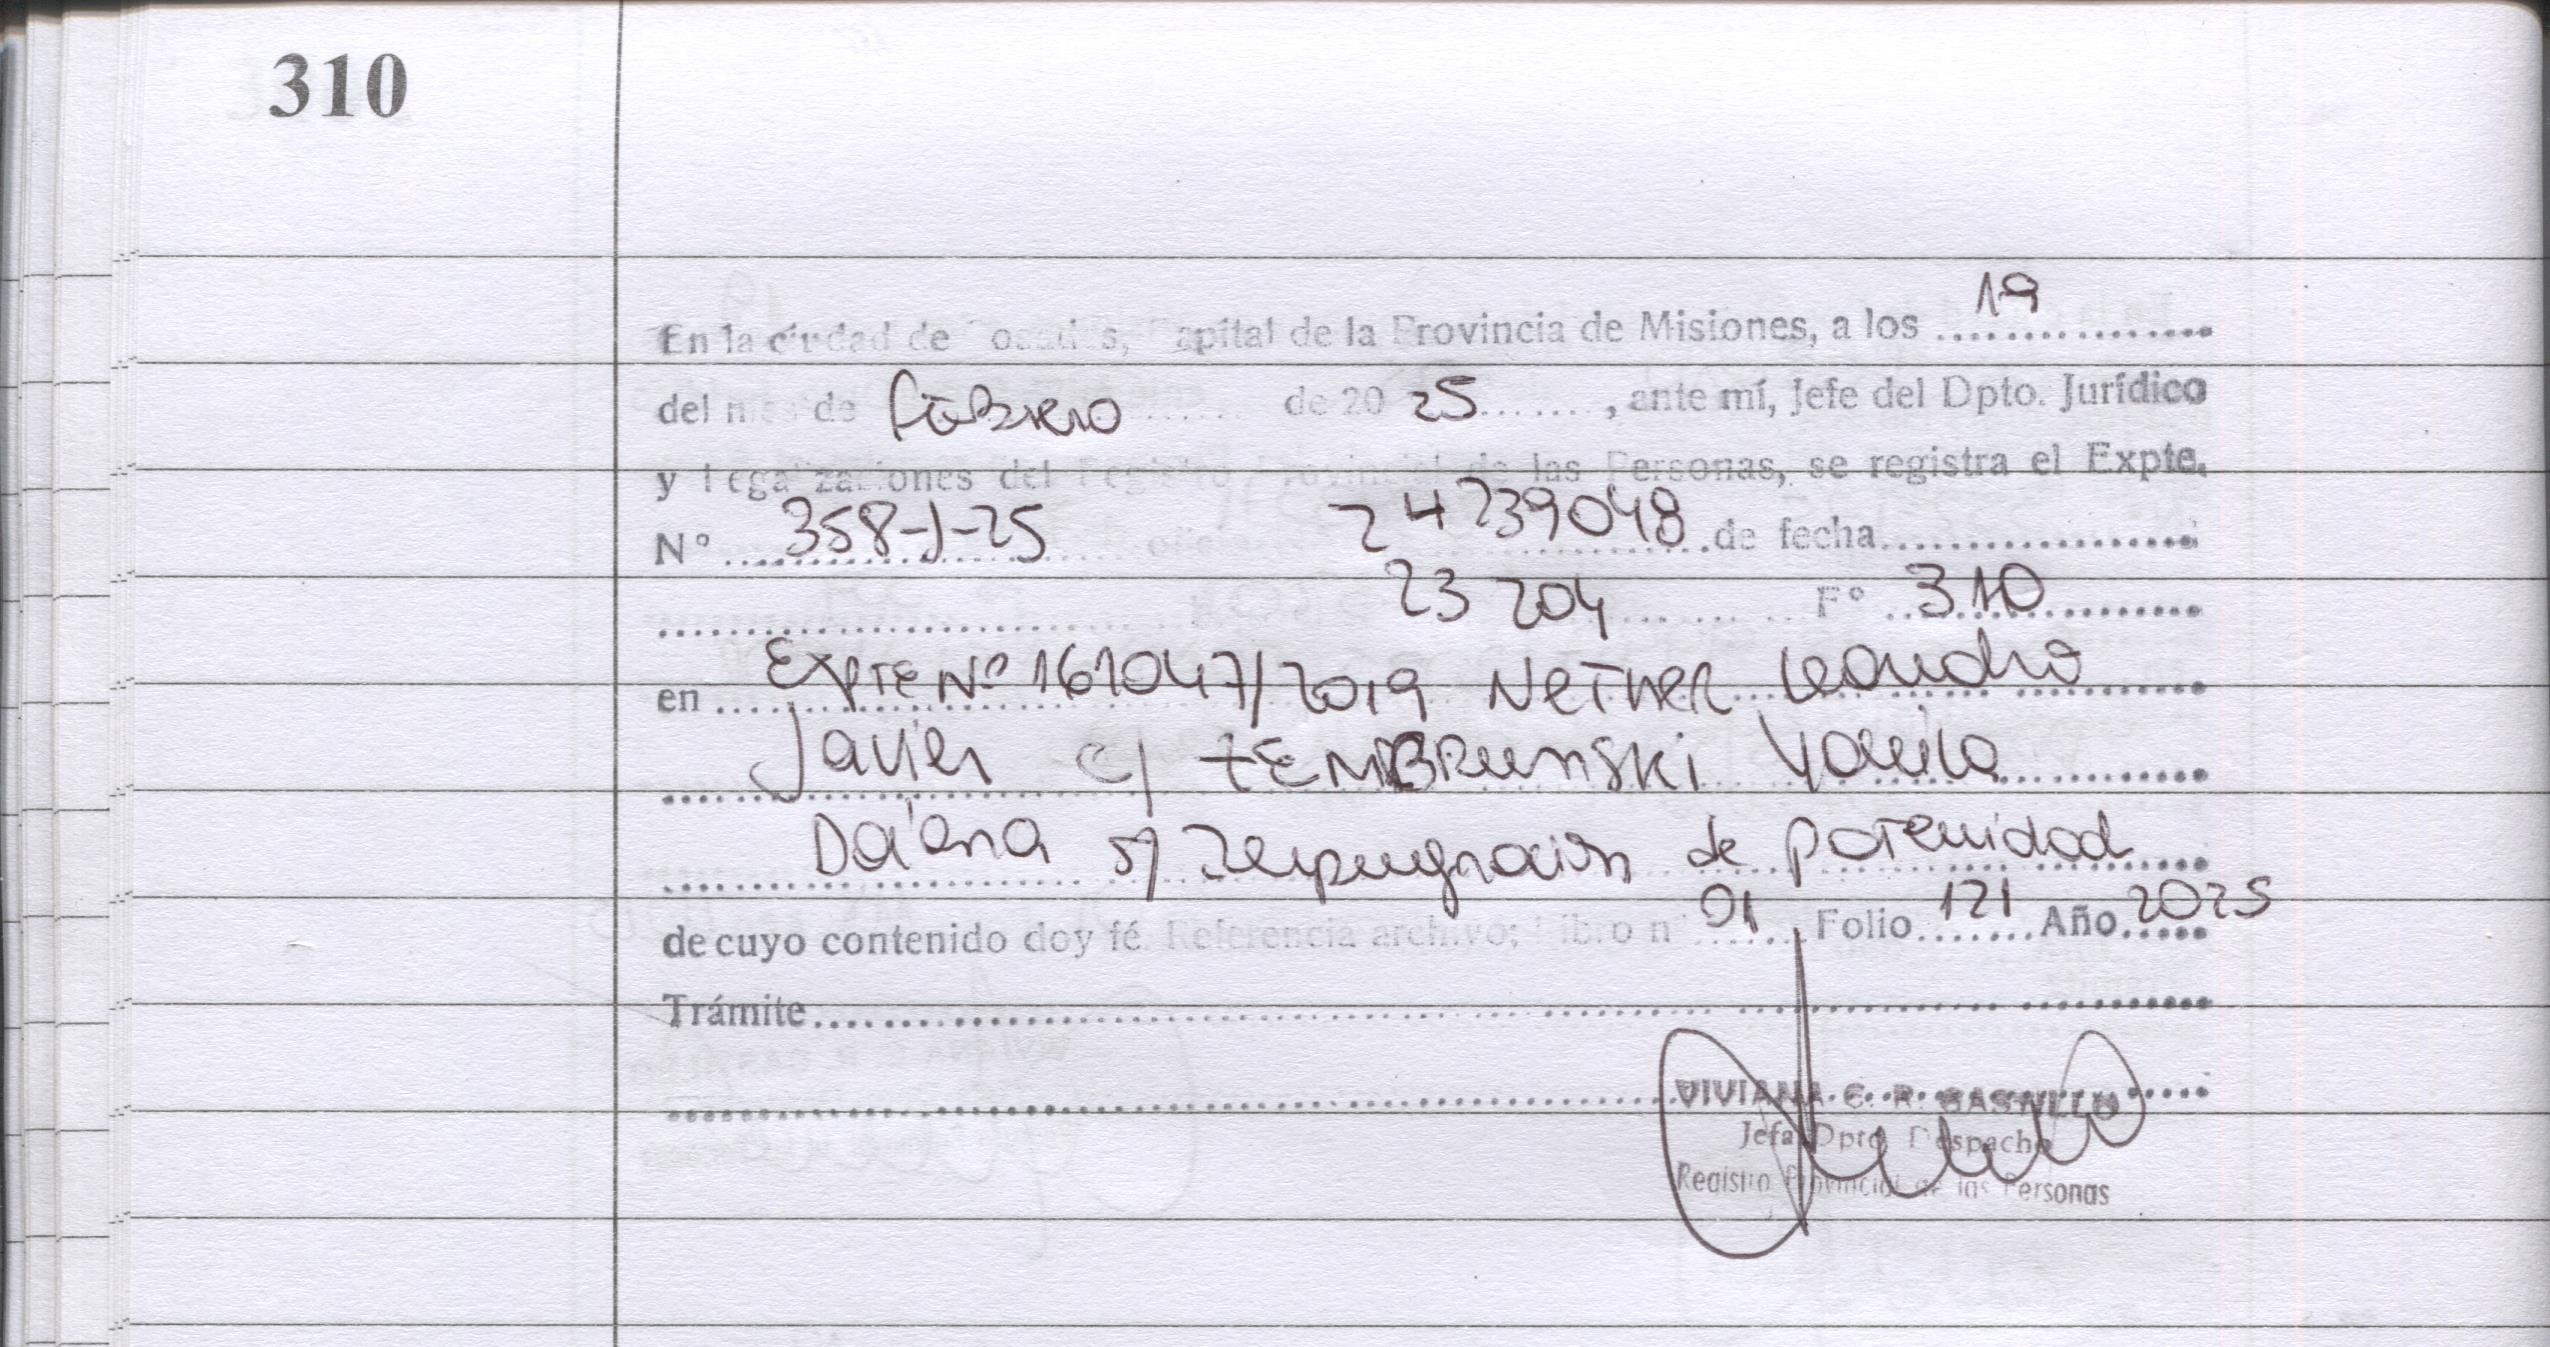 310
En la ciudad de Posadas, Capital de la Provincia de Misiones, a los 19
del mes de febrero de 20 25 , ante mí, Jefe del Dpto. Jurídico
y Legalizaciones del Registro Provincial de las Personas, se registra el Expte.
N° 358-J-25 oficio 24239048 de fecha
23204 F° 310
en Expte Nº 161047/2019 Nether Leandro
Javier c/ ZEMBRUNSKI Yanila
Daiana s/ Impugnación de paternidad
de cuyo contenido doy fé. Referencia archivo; Libro n° 01 Folio 121 Año 2025
Trámite
VIVIANA E. R.
Jefa Dpto. Despacho
Registro Provincial de las Personas